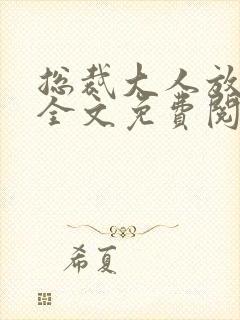 总裁大人放
全文免費閱
希夏